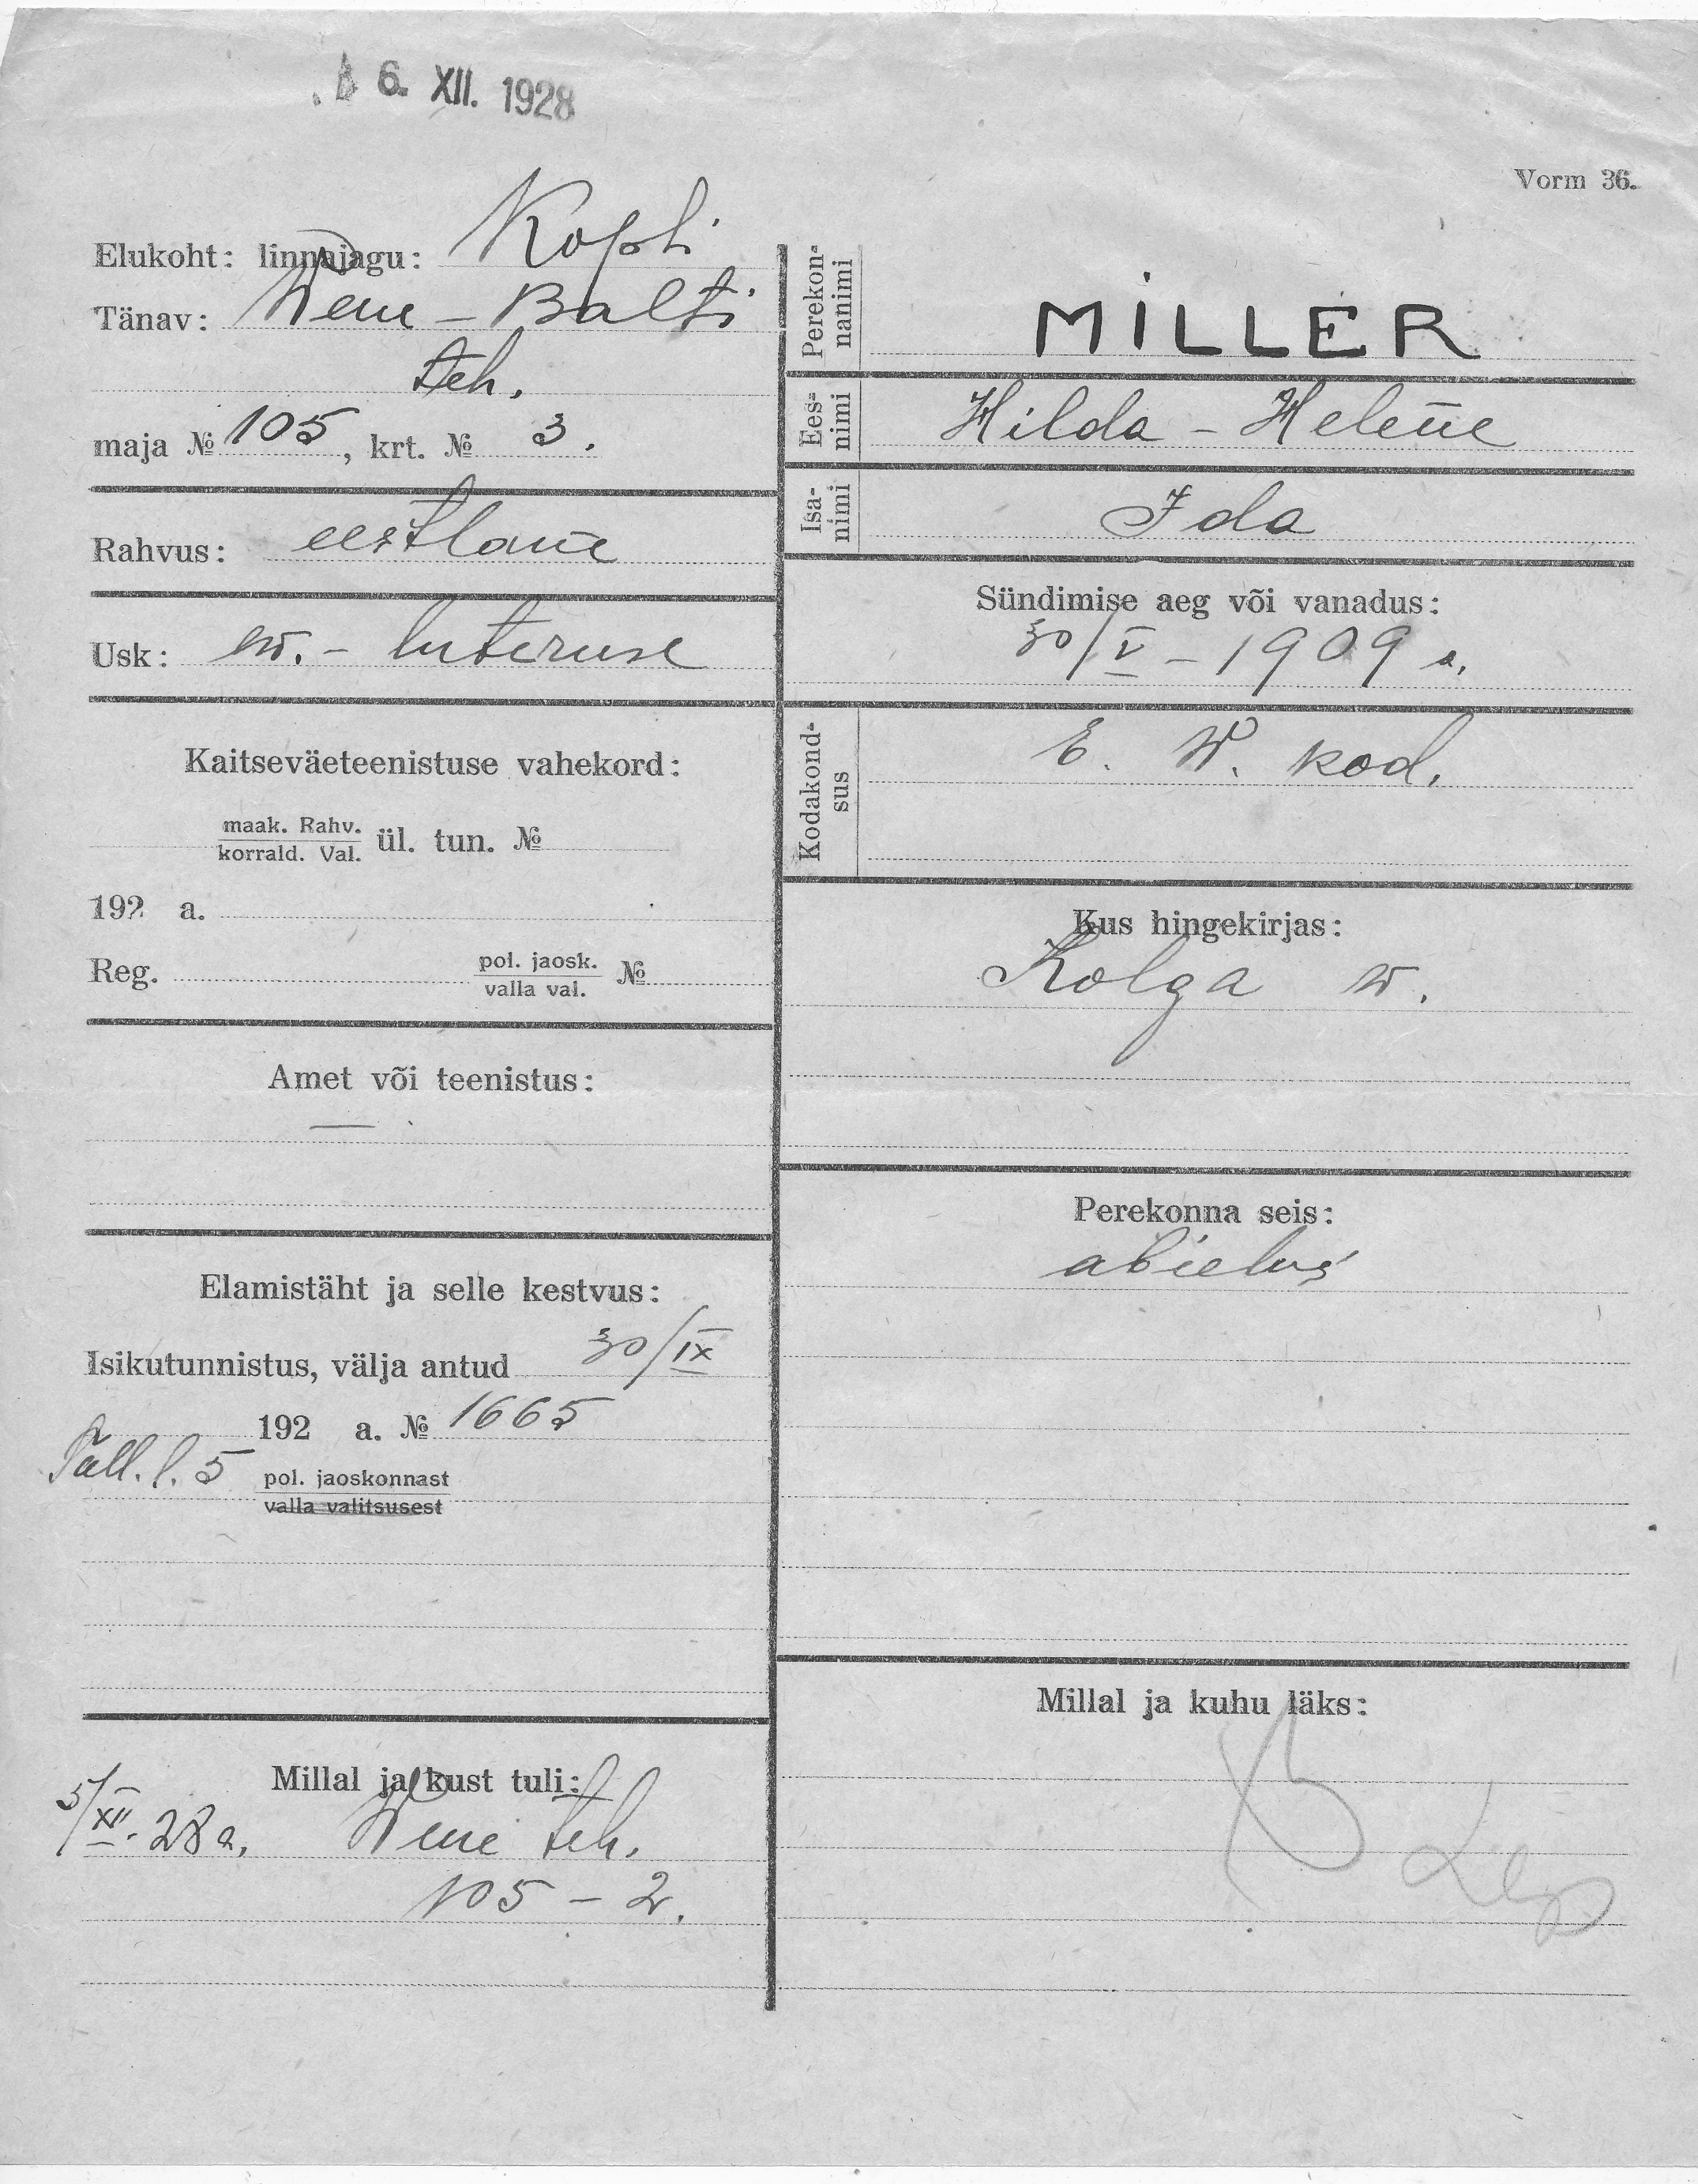 6. XII. 1928
Vorm 36.
Elukoht: linnajagu: Kopli
Tänav: Wene - Balti
teh.
maja № 105, krt. № 3.
Rahvus: eestlane
Usk: ew. - luteruse
Kaitseväeteenistuse vahekord:
maak. Rahv.
korrald. Val. ül. tun. №
192 a.
Reg. pol. jaosk.
valla val. №
Amet või teenistus:
—
Elamistäht ja selle kestvus:
Isikutunnistus, välja antud 30/IX
192 a. № 1665
Tall. l. 5 pol. jaoskonnast
valla valitsusest
Millal ja kust tuli:
5/XII. 28 a. Wene teh.
105 - 2.
Perekon-
nanimi
MILLER
Ees-
nimi
Hilda - Helene
Isa-
nimi
Ida
Sündimise aeg või vanadus:
30/V - 1909 a.
Kodakond-
sus
E. W. kod.
Kus hingekirjas:
Kolga w.
Perekonna seis:
abielus
Millal ja kuhu läks: